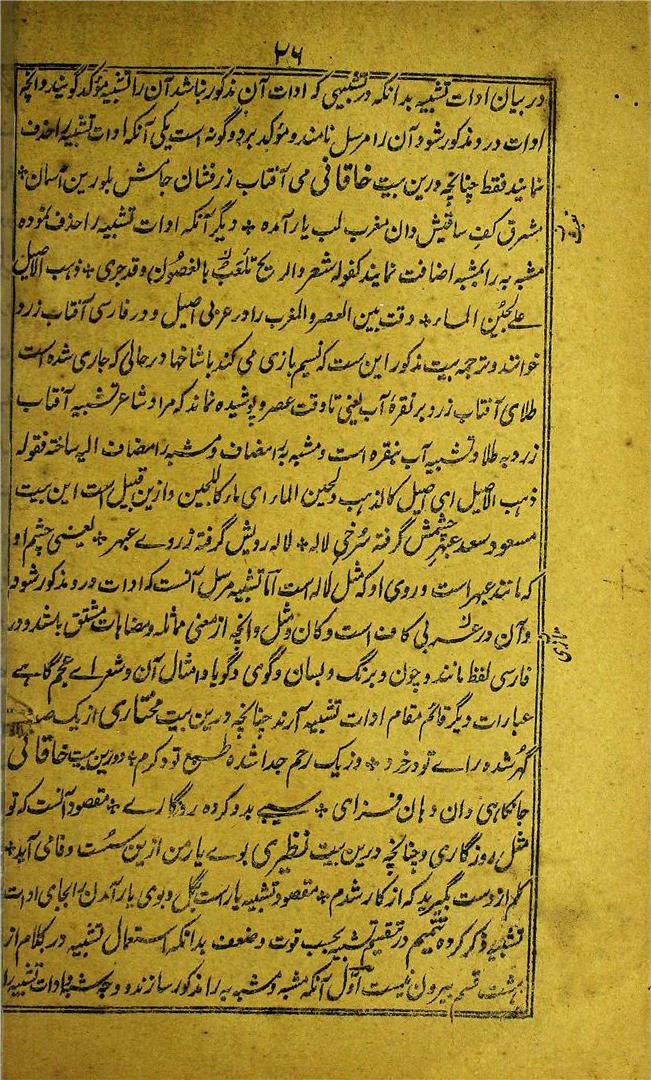 ۲۶
در بیان ادات تشبیه بدانکه در تشبیهی که ادات آن مذکور نباشد آن را تشبیه مؤکد گویند و آنچه
ادات درو مذکور شود آن را مرسل نامند و مؤکد بر دو گونه است یکی آنکه ادات تشبیه را حذف
نمایند فقط چنانچه درین بیت خاقانی می آفتاب زرفشان جامش بلورین آسمان *
مشرق کف ساقیش دان مغرب لب یار آمده * دیگر آنکه ادات تشبیه را حذف نموده
مشبه به را بمشبه اضافت نمایند کقوله شعر و الریح تلعب بالغصون وقد جری * ذهب الاصیل
علی لجین الماء * وقت بین العصر و المغرب را در عربی اصیل و در فارسی آفتاب زرد
خوانند و ترجمه بیت مذکور این ست که نسیم بازی می کند با شاخها در حالی که جاری شده است
طلای آفتاب زرد بر نقره آب یعنی تا وقت عصر و پوشیده نماند که مراد شاعر تشبیه آفتاب
زرد به طلا و تشبیه آب بنقره است و مشبه به را مضاف و مشبه را مضاف الیه ساخته فقوله
ذهب الاصیل ای اصیل کالذهب و لجین الماء ای ماء کاللجین و ازین قبیل است این بیت
مسعود سعد عبهر چشمش گرفته سرخی لاله * لاله رویش گرفته زردی عبهر * یعنی چشم او
که مانند عبهر است و روی او که مثل لاله است اما تشبیه مرسل آنست که ادات درو مذکور شود
و آن در عربی کاف است و کان و مثل و آنچه از معنی مماثله و مضاهات مشتق باشد و در
فارسی لفظ مانند و چون و برنگ و بسان و گوی و گویا و امثال آن و شعرای عجم گاهی
عبارات دیگر قائم مقام ادات تشبیه آرند چنانچه درین بیت مختاری از یک
گهر شده رای تو و خرد * وز یک رحم جدا شده طبع تو و کرم * و درین بیت خاقانی
جانکاهی و ان و هان فزای * سیبی بدو کرده روزگاری * مقصود آنست که تو
مثل روزگاری و چنانچه درین بیت نظیری بوی یار من ازین سست وفا می آید *
گلم از دست بگیرید که از کار شدم * مقصود تشبیه یار است بگل و بوی یار آمدن را بجای ادات
تشبیه ذکر کرده تتمیم در تقسیم تشبیه بحسب قوت و ضعف بدانکه استعمال تشبیه در کلام از
هشت قسم بیرون نیست اول آنکه مشبه و مشبه به را مذکور سازند و وجه شبه و ادات تشبیه را